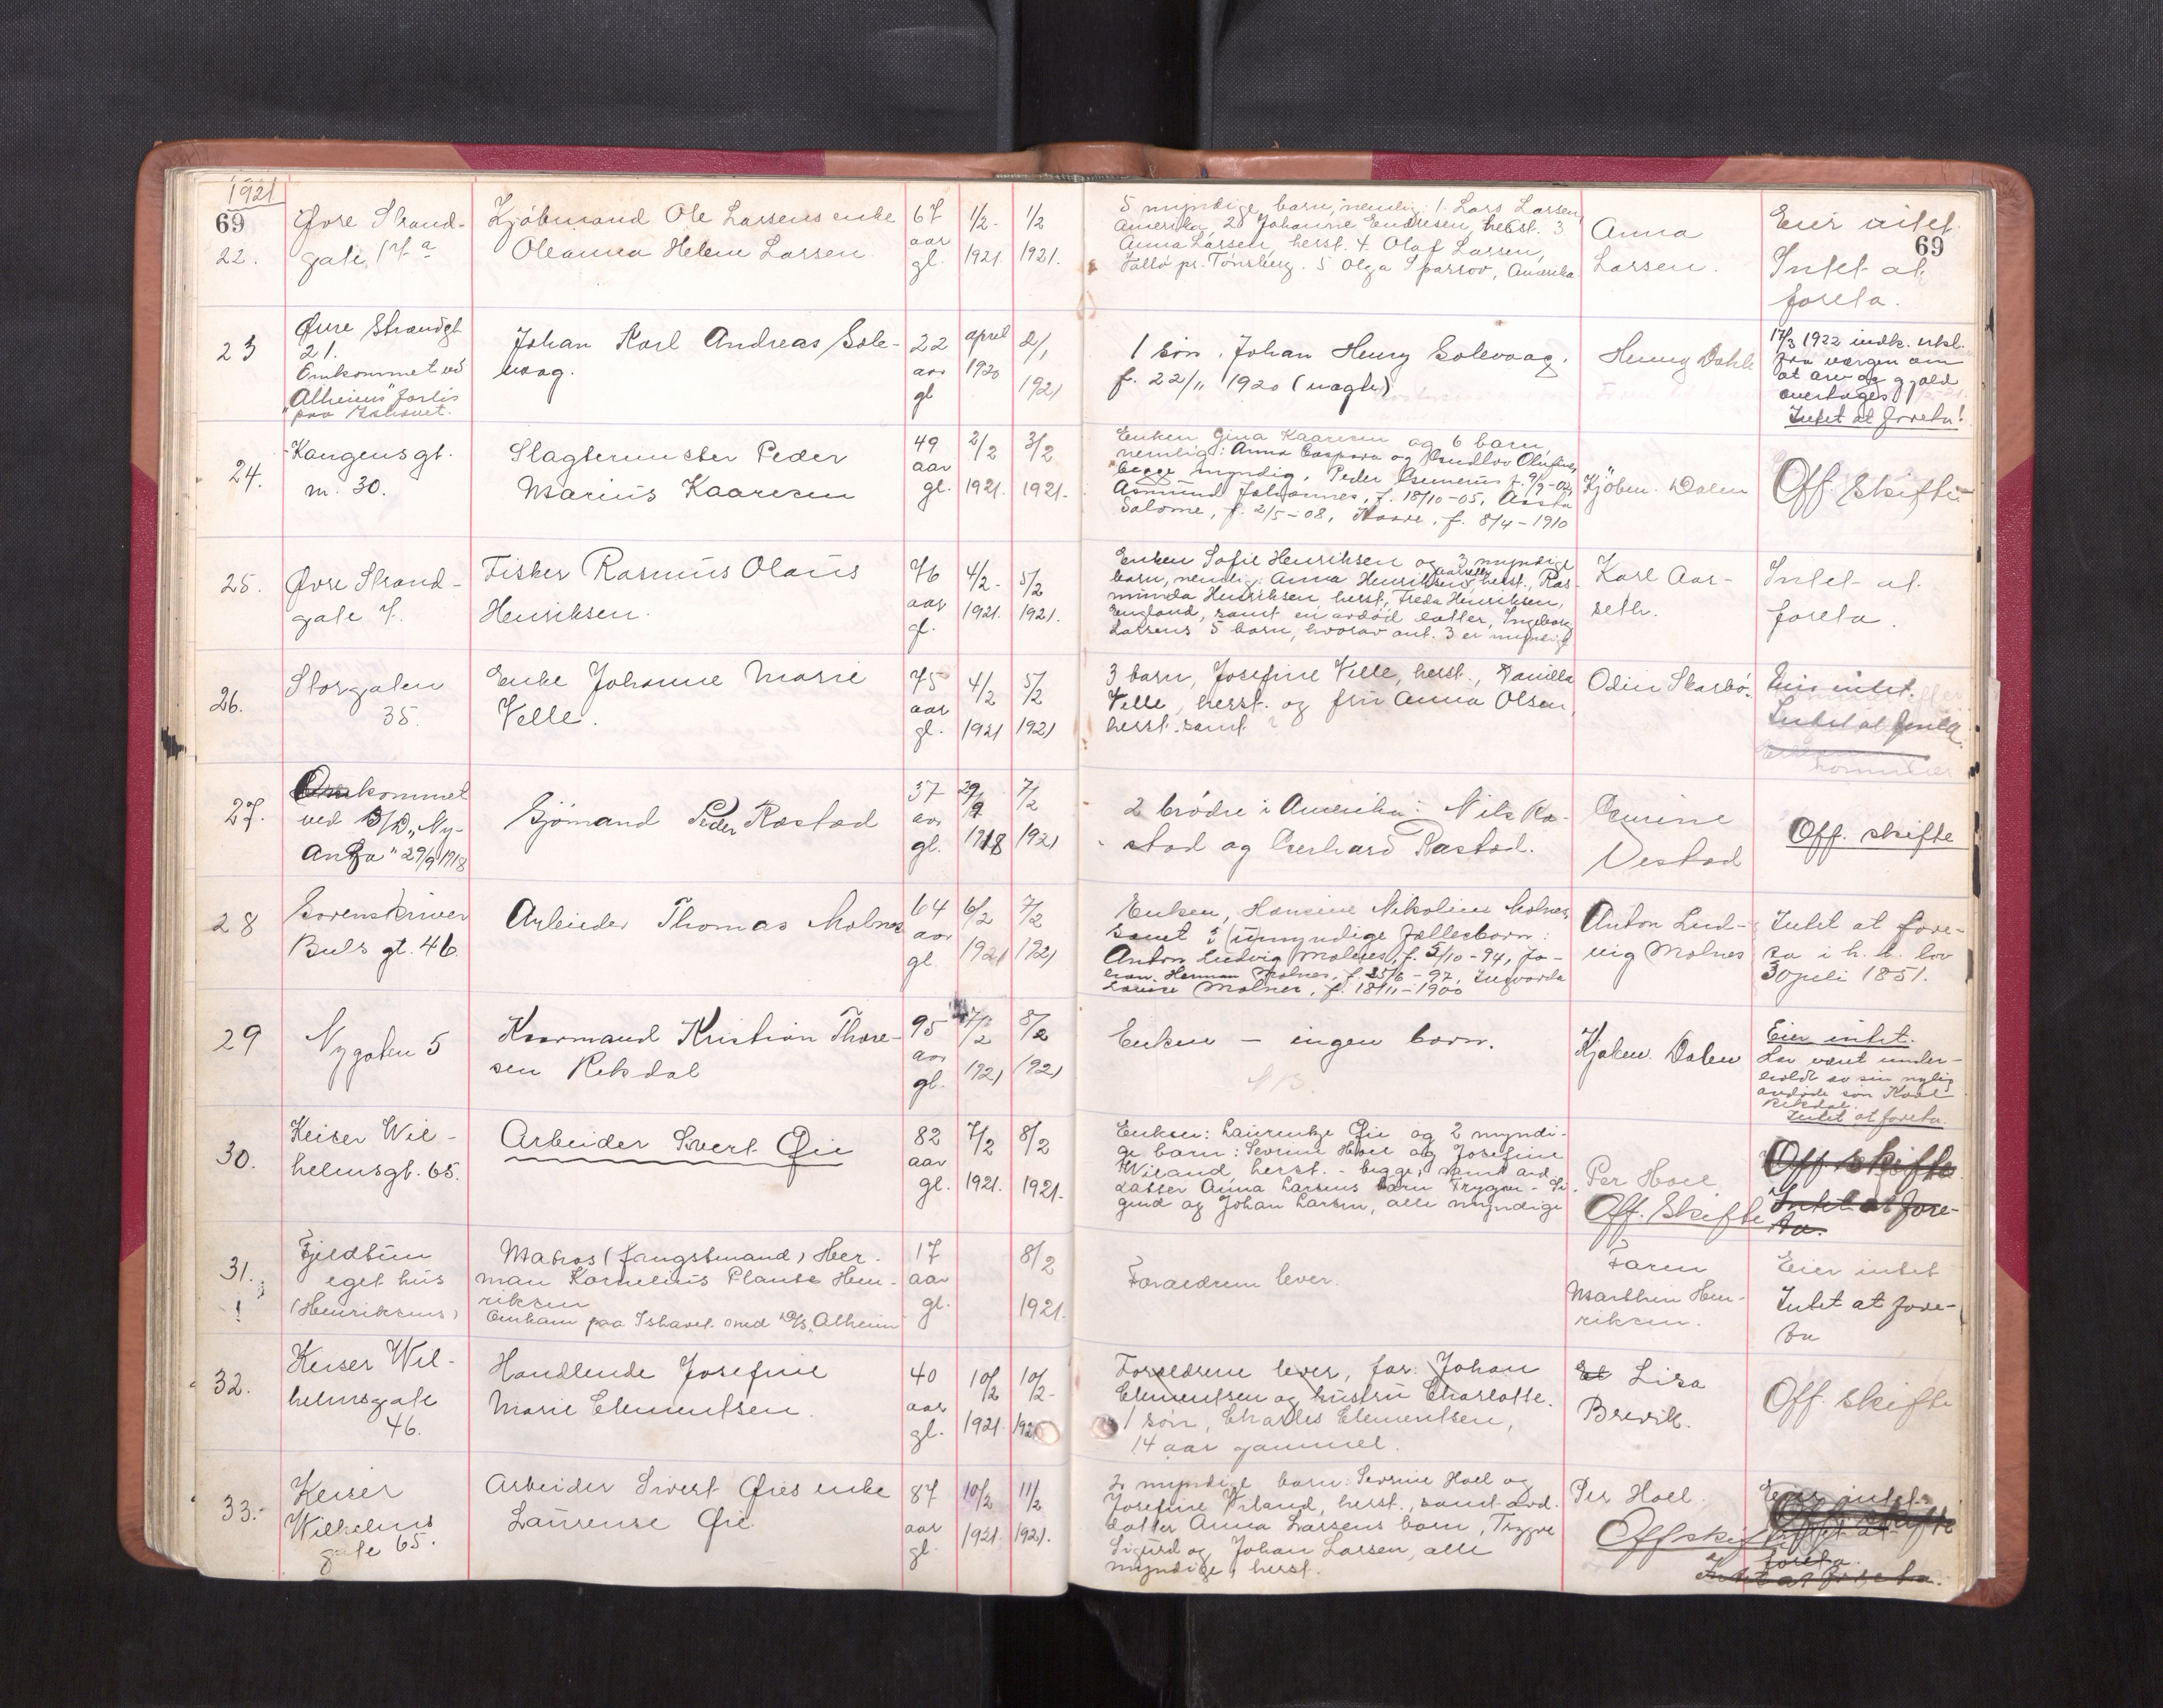 1921
69
22.
Øvre Strand-
gate, 17 a
Kjøbmand Ole Larsens enke
Oleanna Helene Larsen
67
aar
gl.
1/2-
1921.
1/2
1921.
5 myndige barn, nemlig: 1. Lars Larsen,
Amerika, 2 Johanne Endresen, herst. 3
Anna Larsen, herst. 4. Olaf Larsen,
pr. Tønsberg. 5 Olga Sparrov, Amerika
Anna
Larsen.
Eier intet.
69
Intet at
foreta.
23
Øvre Strandgt
21.
Omkommet ved
"Alheim" forlis
paa Ishavet.
Johan Karl Andreas Sole-
vaag.
22
aar
gl
april
1920
2/1
1921
1 søn, Johan Henry Solevaag.
f. 22/11 1920 (uegte)
Henry Dahle
17/3 1922 indk. erkl.
fra vergen om
at arv og gjæld
overtages
Intet at foreta!
24.
Kongensgt.
nr. 30.
Slagtermester Peder
Marius Kaaresen
49
aar
gl.
2/2
1921.
3/2
1921-
Enken Gina Kaaresen og 6 barn,
nemlig: Anna Caspara og Gudlov Olufine,
begge myndig, Peder f. 9/9-02,
Asmund Johannes, f. 18/10-05, Aasta
Salome, f. 2/5-08, Kaare, f. 8/4-1910
Kjøbm. Dalen
Off. Skifte
25.
Øvre Strand-
gate 7.
Fisker Rasmus Olaus
Henriksen.
76
aar
gl.
4/2-
1921.
5/2
1921.
Enken Sofie Henriksen og 3 myndige
barn, nemlig: Anna Henriksen Aarseth, herst., Ras-
munda Henriksen herst, Freda Henriksen,
England, samt en avdød datter, Ingeborg
Larsens 5 barn, hvorav ant. 3 er myndige
Karl Aar-
seth.
Intet at
foreta.
26.
Storgaten
35.
Enke Johanne Marie
Velle.
75
aar
gl.
4/2
1921
5/2
1921
3 barn, Josefine Velle, herst., Danilla
Velle, herst. og fru Anna Olsen,
herst. samt
Odin Skarbø.
Eier intet.
Intet at foreta.
27.
Omkommet
ved D/S "Ny-
Anga" 29/9 1918
Sjømand Peder Rastad
37
aar
gl.
29/9
1918
7/2
1921
2 brødre i Amerika: Nils Ra-
stad og Gerhard Rastad.
Vestad
Off. skifte
28
Sorenskriver
Buls gt. 46.
Arbeider Thomas Molnes
64
aar
gl.
6/2
1921
7/2
1921
Enken, Hansine Nikoline Molnes,
samt 3 umyndige fællesbarn:
Anton Ludvig Molnes, f. 5/10-94, Jo-
han Herman Molnes, f. 25/6-97, Ingvarda
Lovise Molnes, f. 18/11-1900
Anton Lud-
vig Molnes
Intet at fore-
ta i h. t. lov
30 juli 1851.
29
Nygaten 5
Kaarmand Kristian Thore-
sen Rekdal
95
aar
gl.
7/2
1921
8/2
1921
Enken - ingen barn.
Kjøbm. Dalen
Eier intet.
Har været under-
holdt av sin nylig
avdøde søn Karl
Rekdal.
Intet at foreta.
30.
Keiser Wil-
helmsgt. 65.
Arbeider Sivert Øie
82
aar
gl.
7/2
1921.
8/2
1921-
Enken: Laurentze Øie og 2 myndi-
ge barn: Severine Hoel og Josefine
Wiland herst. - begge, samt avd.
datter Anna Larsens barn Trygve - Si-
gurd og Johan Larsen, alle myndige
Per Hoel
Off. Skifte
Off. skifte.
Intet at fore-
ta.
31.
Fjeldtun
eget hus
(Henriksens)
Matros (fangstmand) Her-
man Kornelius Plaute Hen-
riksen
Omkom paa Ishavet med D/S "Alheim
17
aar
gl.
8/2
1921.
Foreldrene lever.
Faren
Marthin Hen-
riksen.
Eier intet
Intet at fore-
ta
32.
Keiser Wil-
helmsgate
46.
Handlende Josefine
Marie Clementsen.
40
aar
gl.
10/2
1921.
10/2-
1921
Foreldrene lever, far: Johan
Clementsen og hustru Charlotte.
1 søn, Charles Clementsen,
14 aar gammel.
Lisa
Brevik.
Off. skifte
33.-
Keiser
Wilhelms
gate 65.
Arbeider Sivert Øies enke
Laurense Øie.
87
aar
gl.
10/2
1921.
11/2
1921.
2 myndige barn: Severine Hoel og
Josefine Wiland, herst., samt avd.
datter Anna Larsens barn, Trygve
Sigurd og Johan Larsen, alle
myndige, herst.
Per Hoel.
Off skifte
Eier intet.
Off. skifte
Intet at
foreta.
Intet at foreta.